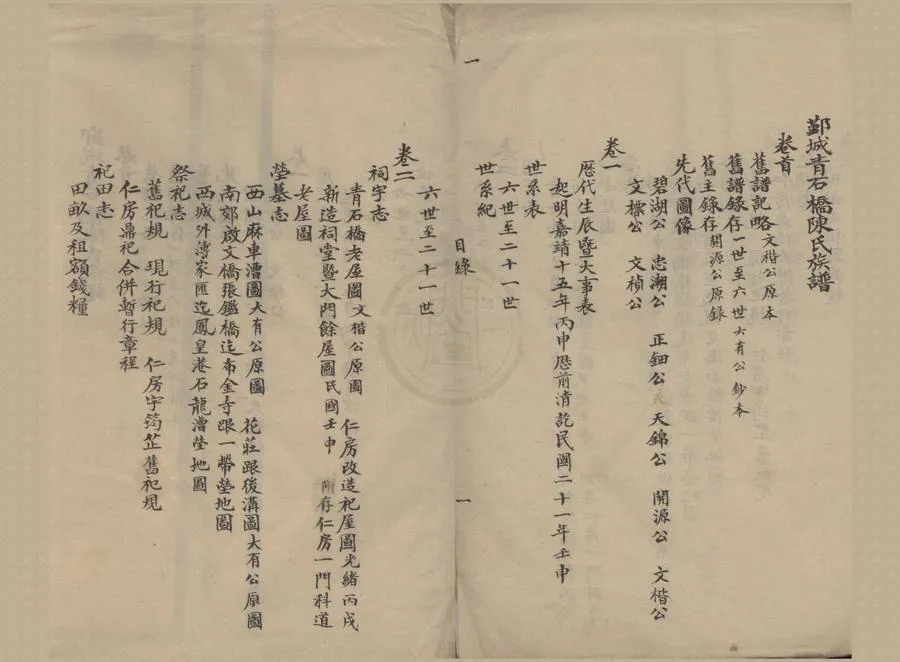 鄞城青石橋陳氏族譜
卷首
舊譜記略 文楷公原本
舊譜錄存 一世至六世大有公鈔本
舊主錄存 開源公原錄
先代圖像
碧湖公 忠湖公 正鈿公 天錦公 開源公 文楷公
文標公 文楨公
卷一
歷代生辰暨大事表
起明嘉靖十五年丙申歷前清訖民國二十一年壬申
世系表
六世至二十一世
世系紀
一
目錄
一
六世至二十一世
卷二
祠宇志
青石橋老屋圖 文楷公原圖 仁房改造祀屋圖 光緒丙戌
新造祠堂暨大門餘屋圖 民國壬申 附存仁房一門科道
老屋圖
塋墓志
西山麻車漕圖 大有公原圖 花莊跟後溝圖 大有公原圖
南郊啟文橋張鑑橋迄布金寺跟一帶塋地圖
西城外薄家匯迄鳳皇港石龍漕塋地圖
祭祀志
舊祀規 現行祀規 仁房宇筠芷舊祀規
仁房鼎祀合併暫行章程
祀田志
田畝及租額錢糧